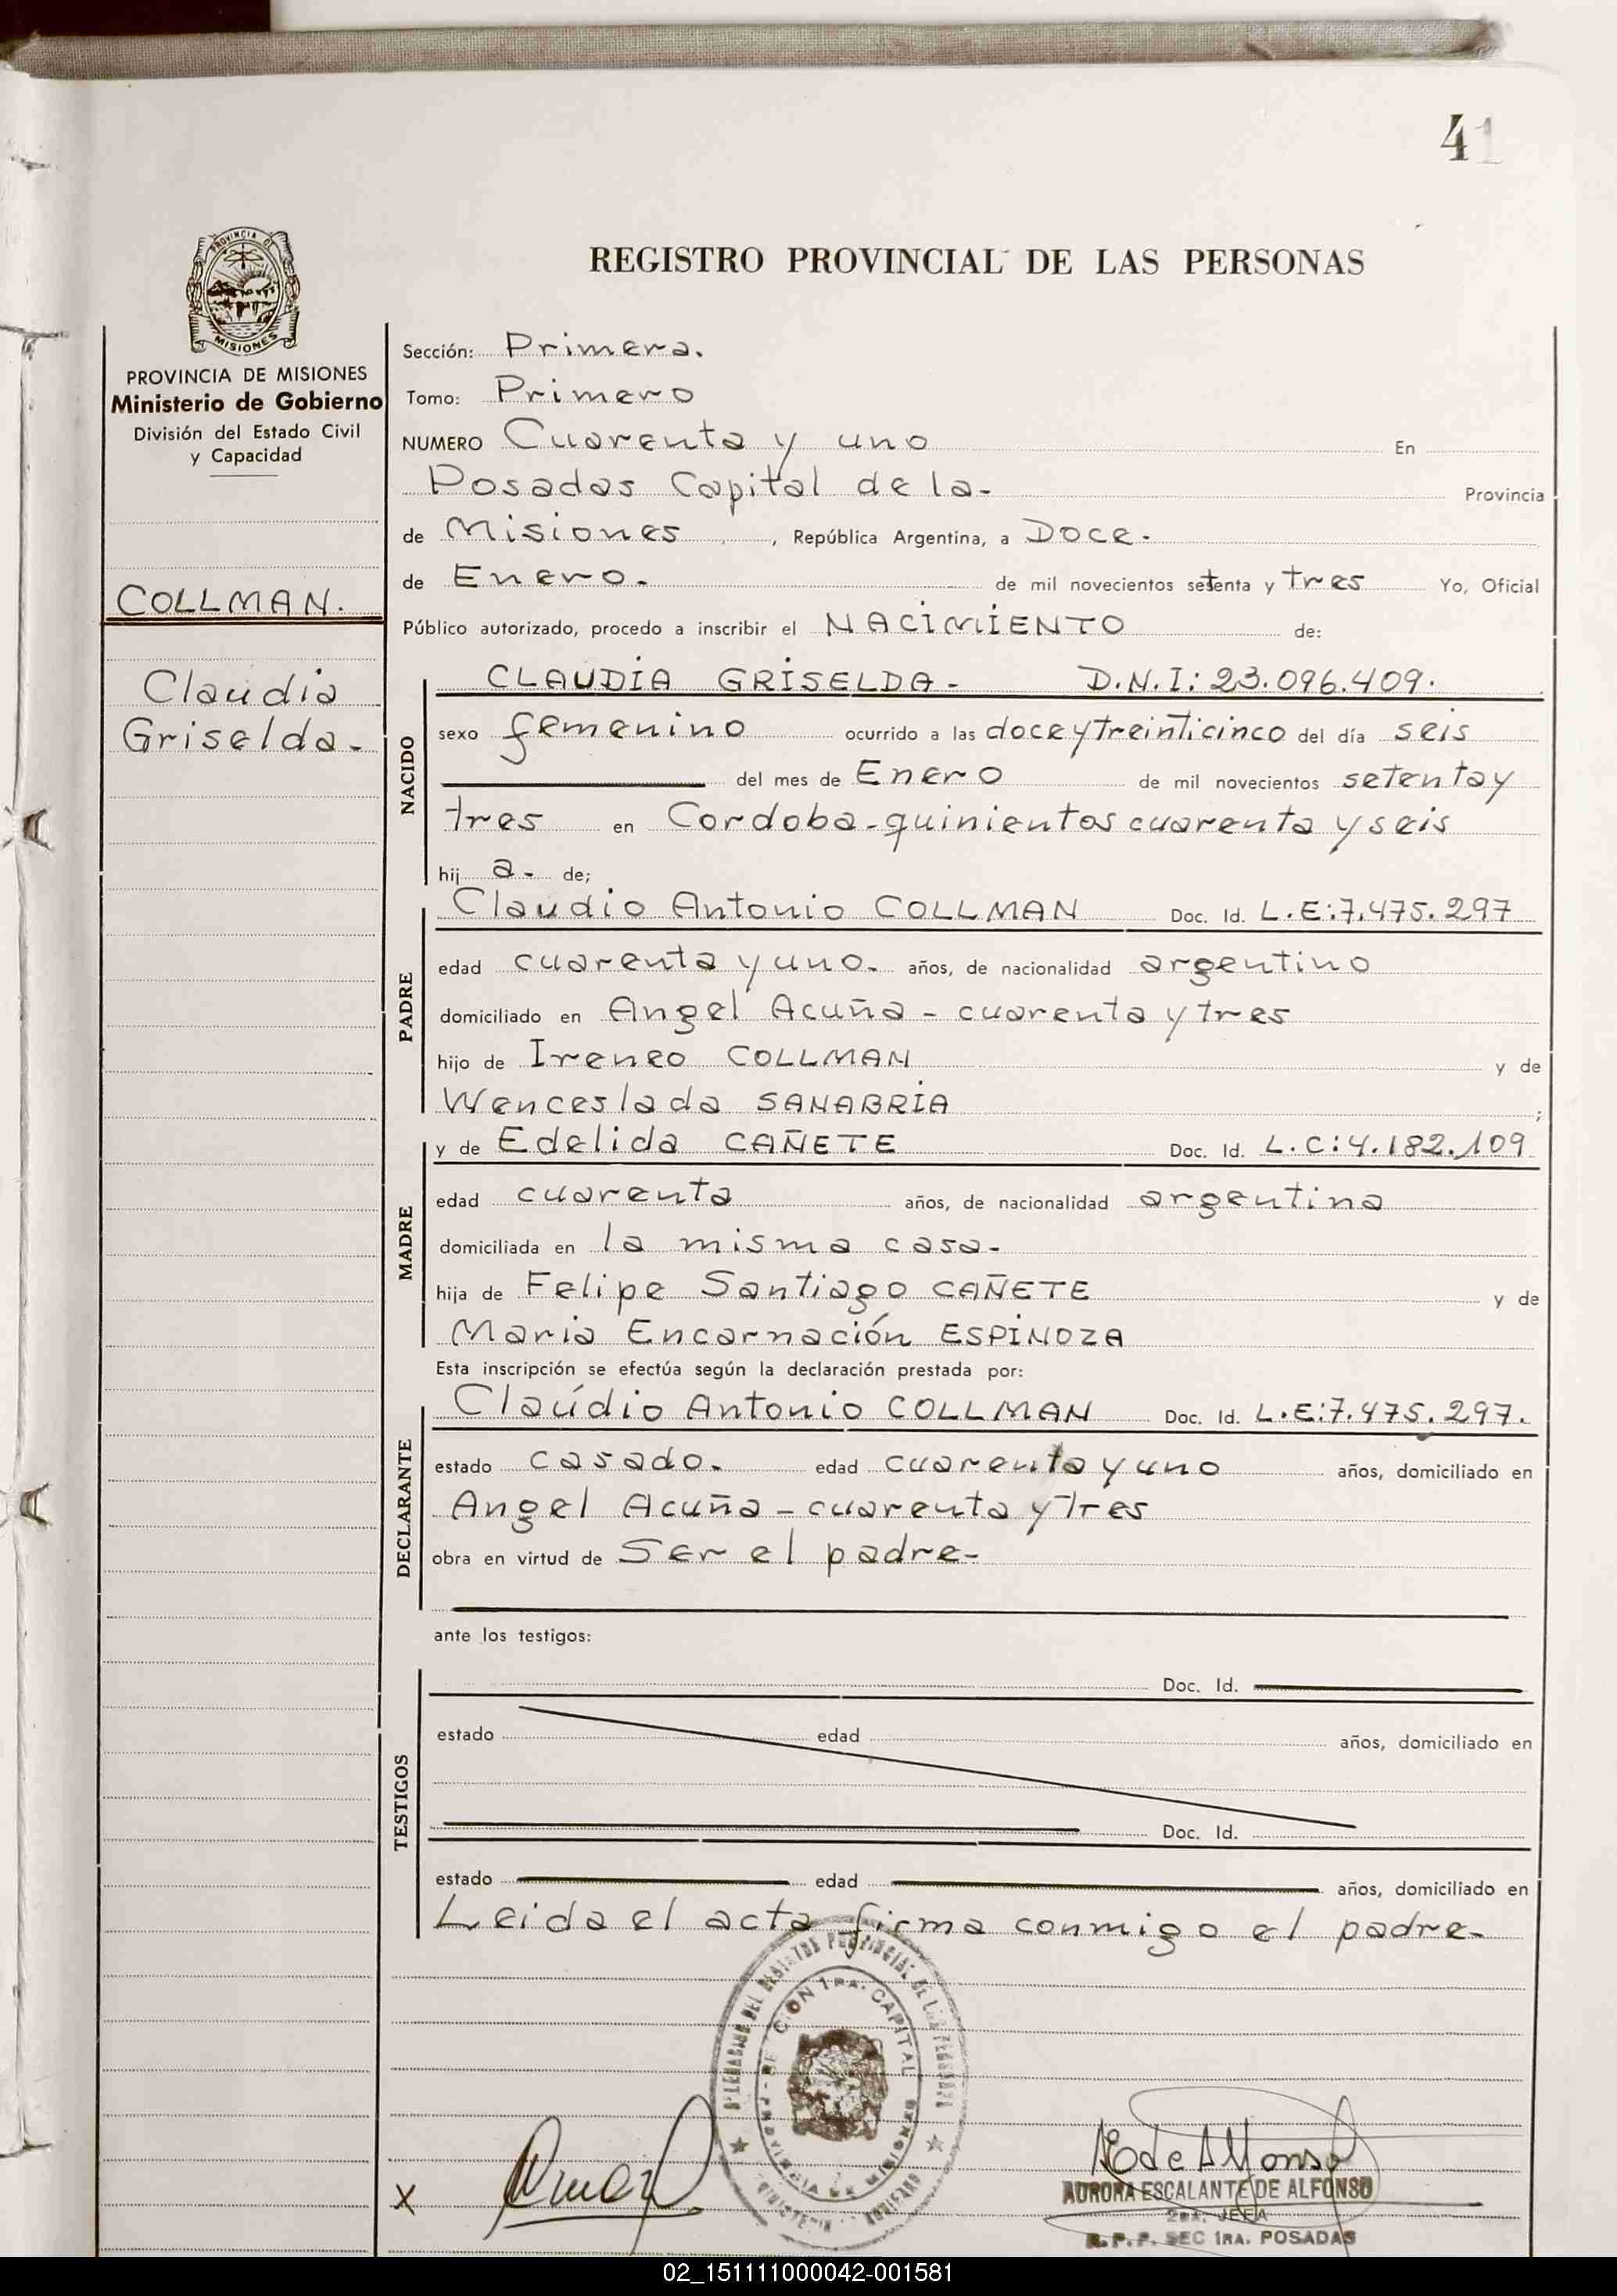 41
PROVINCIA DE
MISIONES
PROVINCIA DE MISIONES
Ministerio de Gobierno
División del Estado Civil
y Capacidad
COLLMAN.
Claudia
Griselda-
REGISTRO PROVINCIAL DE LAS PERSONAS
Sección: Primera.
Tomo: Primero
NUMERO Cuarenta y uno En
Posadas Capital de la- Provincia
de Misiones, República Argentina, a Doce.
de Enero. de mil novecientos setenta y tres Yo, Oficial
Público autorizado, procedo a inscribir el NACIMIENTO de:
NACIDO
CLAUDIA GRISELDA- D.N.I: 23.096.409.
sexo femenino ocurrido a las doce y treinticinco del día seis
del mes de Enero de mil novecientos setenta y
tres en Cordoba-quinientos cuarenta y seis
hij a- de;
PADRE
Claudio Antonio COLLMAN Doc. Id. L.E:7.475.297
edad cuarenta y uno. años, de nacionalidad argentino
domiciliado en Angel Acuña - cuarenta y tres
hijo de Ireneo COLLMAN y de
Wenceslada SANABRIA ;
MADRE
y de Edelida CAÑETE Doc. Id. L.C:4.182.109
edad cuarenta años, de nacionalidad argentina
domiciliada en la misma casa-
hija de Felipe Santiago CAÑETE y de
Maria Encarnación ESPINOZA
Esta inscripción se efectúa según la declaración prestada por:
DECLARANTE
Claúdio Antonio COLLMAN Doc. Id. L.E:7.475.297.
estado casado. edad cuarenta y uno años, domiciliado en
Angel Acuña - cuarenta y tres
obra en virtud de Ser el padre-
ante los testigos:
TESTIGOS
Doc. Id.
estado edad años, domiciliado en
Doc. Id.
estado edad años, domiciliado en
Leida el acta firma conmigo el padre-
DEL REGISTRO PROVINCIAL DE LAS PERSONAS
1RA. CAPITAL
PROVINCIA DE MISIONES
X
AEde Alfonso
AURORA ESCALANTE DE ALFONSO
2da. JEFA
R.P.P. SEC 1RA. POSADAS
02_151111000042-001581